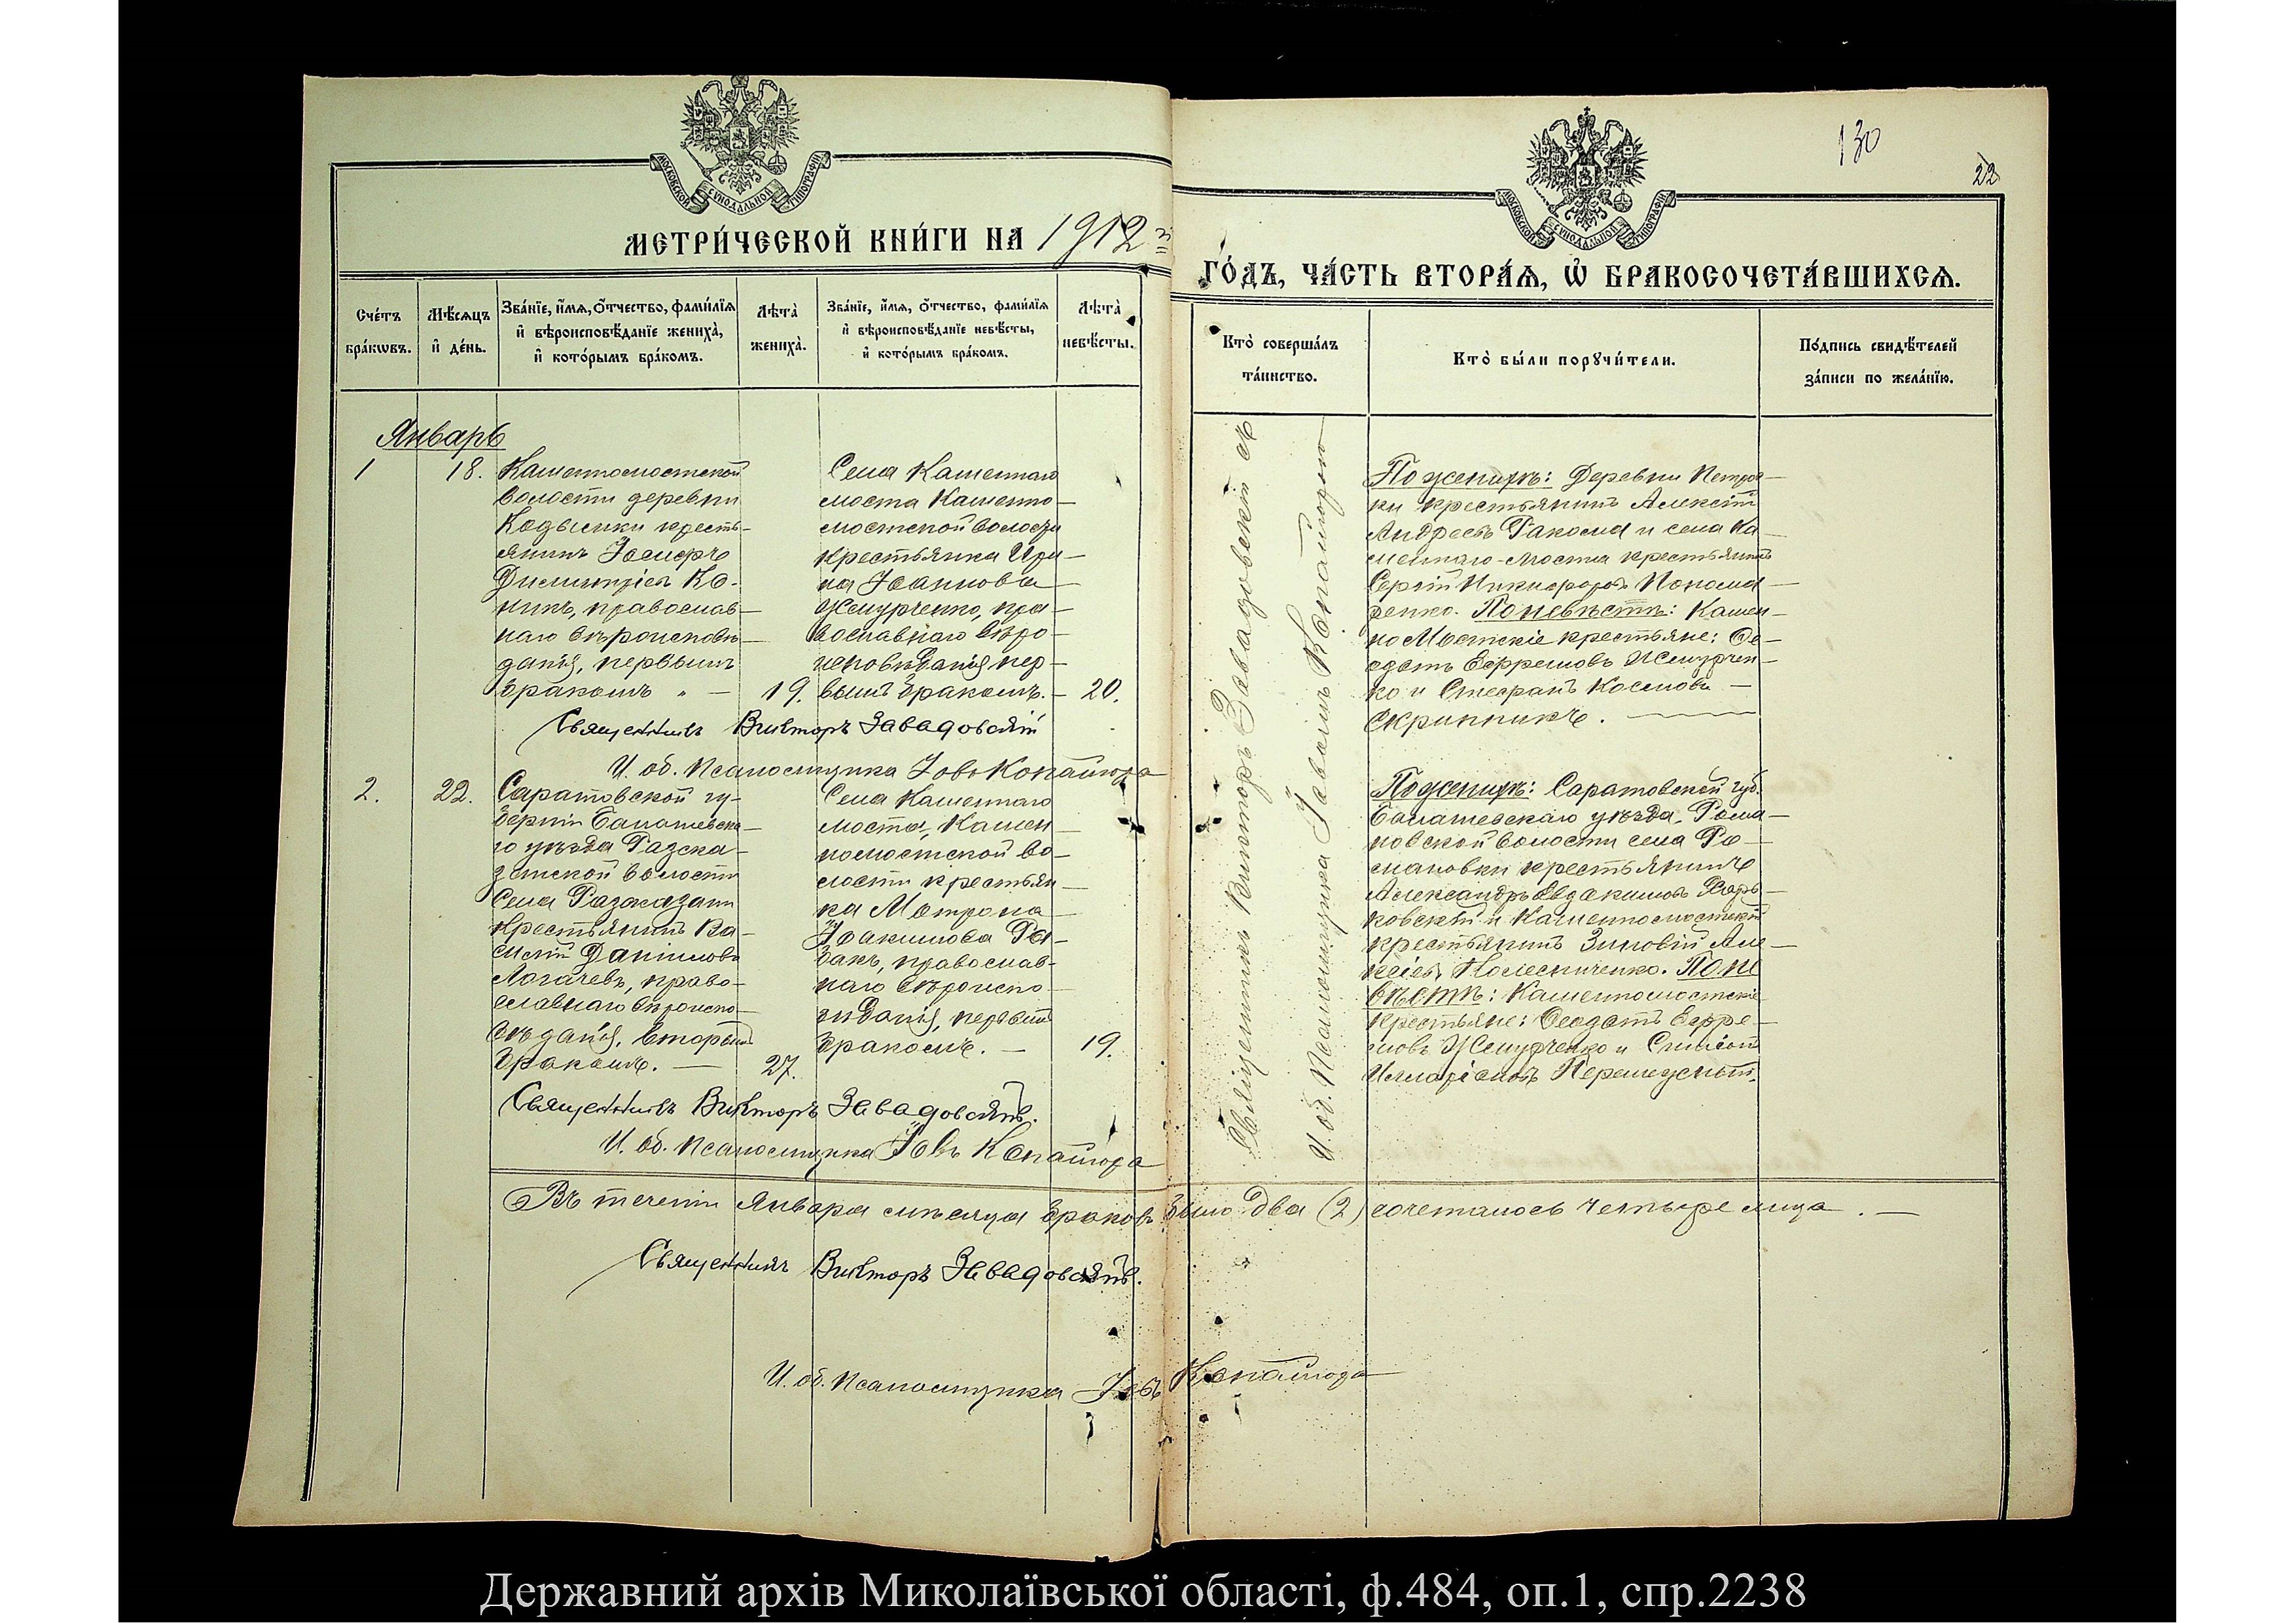 130
22
МОСКОВСКОЙ СѴНОДАЛЬНОЙ ТИПОГРАФІИ
МОСКОВСКОЙ СѴНОДАЛЬНОЙ ТИПОГРАФІИ
МЕТРИ́ЧЕСКОЙ КНИ́ГИ НА 1912 й
ГО́ДЪ, ЧА́СТЬ ВТОРА́Ѧ, Ѽ БРАКОСОЧЕТА́ВШИХСѦ.
Сче́тъ бра́кѡвъ.
Мѣ́сѧцъ и҆ де́нь.
Зва́нїе, и҆́мѧ, ѻ҆́тчество, фами́лїѧ и҆ вѣроисповѣ́данїе жениха̀, и҆ кото́рымъ бра́комъ.
Лѣта̀ жениха̀.
Зва́нїе, и҆́мѧ, ѻ҆́тчество, фами́лїѧ и҆ вѣроисповѣ́данїе невѣ́сты, и҆ кото́рымъ бра́комъ.
Лѣта̀ невѣ́сты.
Кто̀ соверша́лъ та́инство.
Кто̀ бы́ли порꙋчи́тели.
По́дпись свидѣ́телей за́писи по жела́нїю.
Январь
1
18.
Каменномостской
волости деревни
крестъ-
янинъ Іосифъ
Димитріевъ Ко-
никъ, православ-
наго вѣроисповѣ-
данія, первымъ
бракомъ
19.
Села Каменнаго
моста Каменно-
мостской волости
крестьянка Ири-
на Іоаннова
Жемурченко, пра-
вославнаго вѣро-
исповѣданія пер-
вымъ бракомъ.
20.
Подженихъ: Деревни Петров-
ки крестьянинъ Алексѣй
Андреевъ и села Ка-
меннаго-моста крестьянинъ
Сергій Никифоровъ Понома-
ренко. Поневѣстѣ: Камен-
номостскіе крестьяне: Ѳе-
одотъ Ефремовъ Жемурчен-
ко и Стефанъ Космовъ
Скрипникъ.
Священникъ Викторъ Завадовскій
И. об. Псаломщика Іовъ Копайгора
2.
22.
Саратовской гу-
берніи Балашевска-
го уѣзда Разска-
занской волости
Села Разсказани
Крестьянинъ Ва-
силій Даніиловъ
Логачевъ, право-
славнаго вѣроиспо-
вѣданія, вторымъ
бракомъ.
27.
Села Каменнаго
моста, Камен-
номостской во-
лости крестьян-
ка Матрона
Іоакимова Ря-
бакъ, православ-
наго вѣроиспо-
вѣданія, первымъ
бракомъ.
19.
Подженихъ: Саратовской губ.
Балашевскаго уѣзда, Рома-
новской волости села Ро-
мановки крестьянинъ
Александръ Евдокимовъ Харь-
ковскій и Каменномостскій
крестьянинъ Зиновій Але-
ксіевъ Колесниченко. Поне
вѣстѣ: Каменномостскіе
крестьяне: Ѳеодотъ Ефре-
мовъ Жемурченко и Симеонъ
Священникъ Викторъ Завадовскій.
И. об. Псаломщика Іовъ Копайгора
Священникъ Викторъ Завадовскій съ
И. об. Псаломщика Іовомъ Копайгорою
Въ теченіи Января мѣсяца браковъ было два (2) сочеталось четыре лица.
Священникъ Викторъ Завадовскій.
И. об. Псаломщика Іовъ Копайгора
Державний архів Миколаївської області, ф.484, оп.1, спр.2238